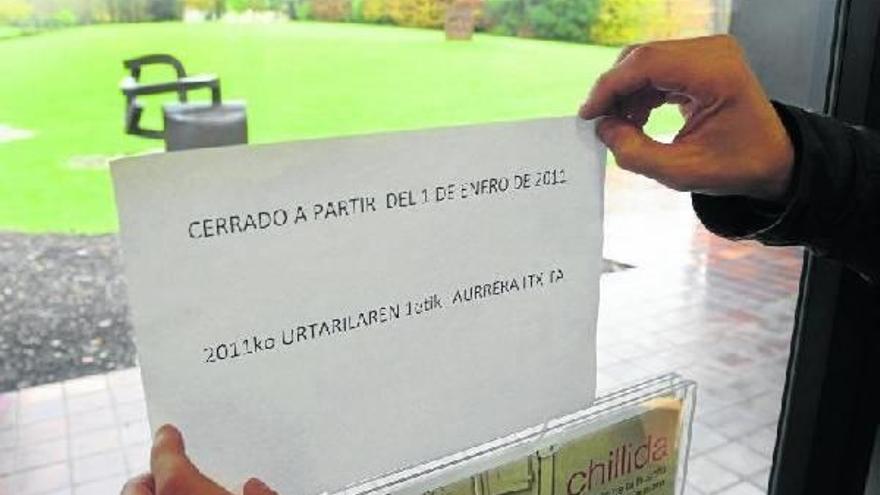 CERRADO A PARTIR DEL 1 DE ENERO DE 2011
2011ko URTARILAREN 1etik AURRERA ITXITA
chillida